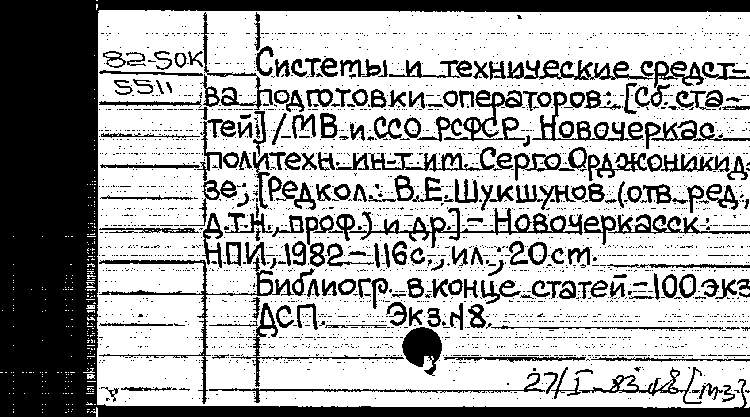 82-5OK
5511
Системы и технические средст-
ва подготовки операторов: [Сб. ста-
тей] / МВ и ССО РСФСР, Новочеркас.
политехн. ин-т им. Серго Орджоникид-
зе; [Редкол.: В.Е. Шукшунов (отв. ред.,
д.т.н., проф.) и др.] - Новочеркасск:
НПИ, 1982 - 116 с., ил.; 20 cm.
Библиогр. в конце статей. - 100 экз
ДСП. Экз. №8.
27/I-83 №8 [тз]